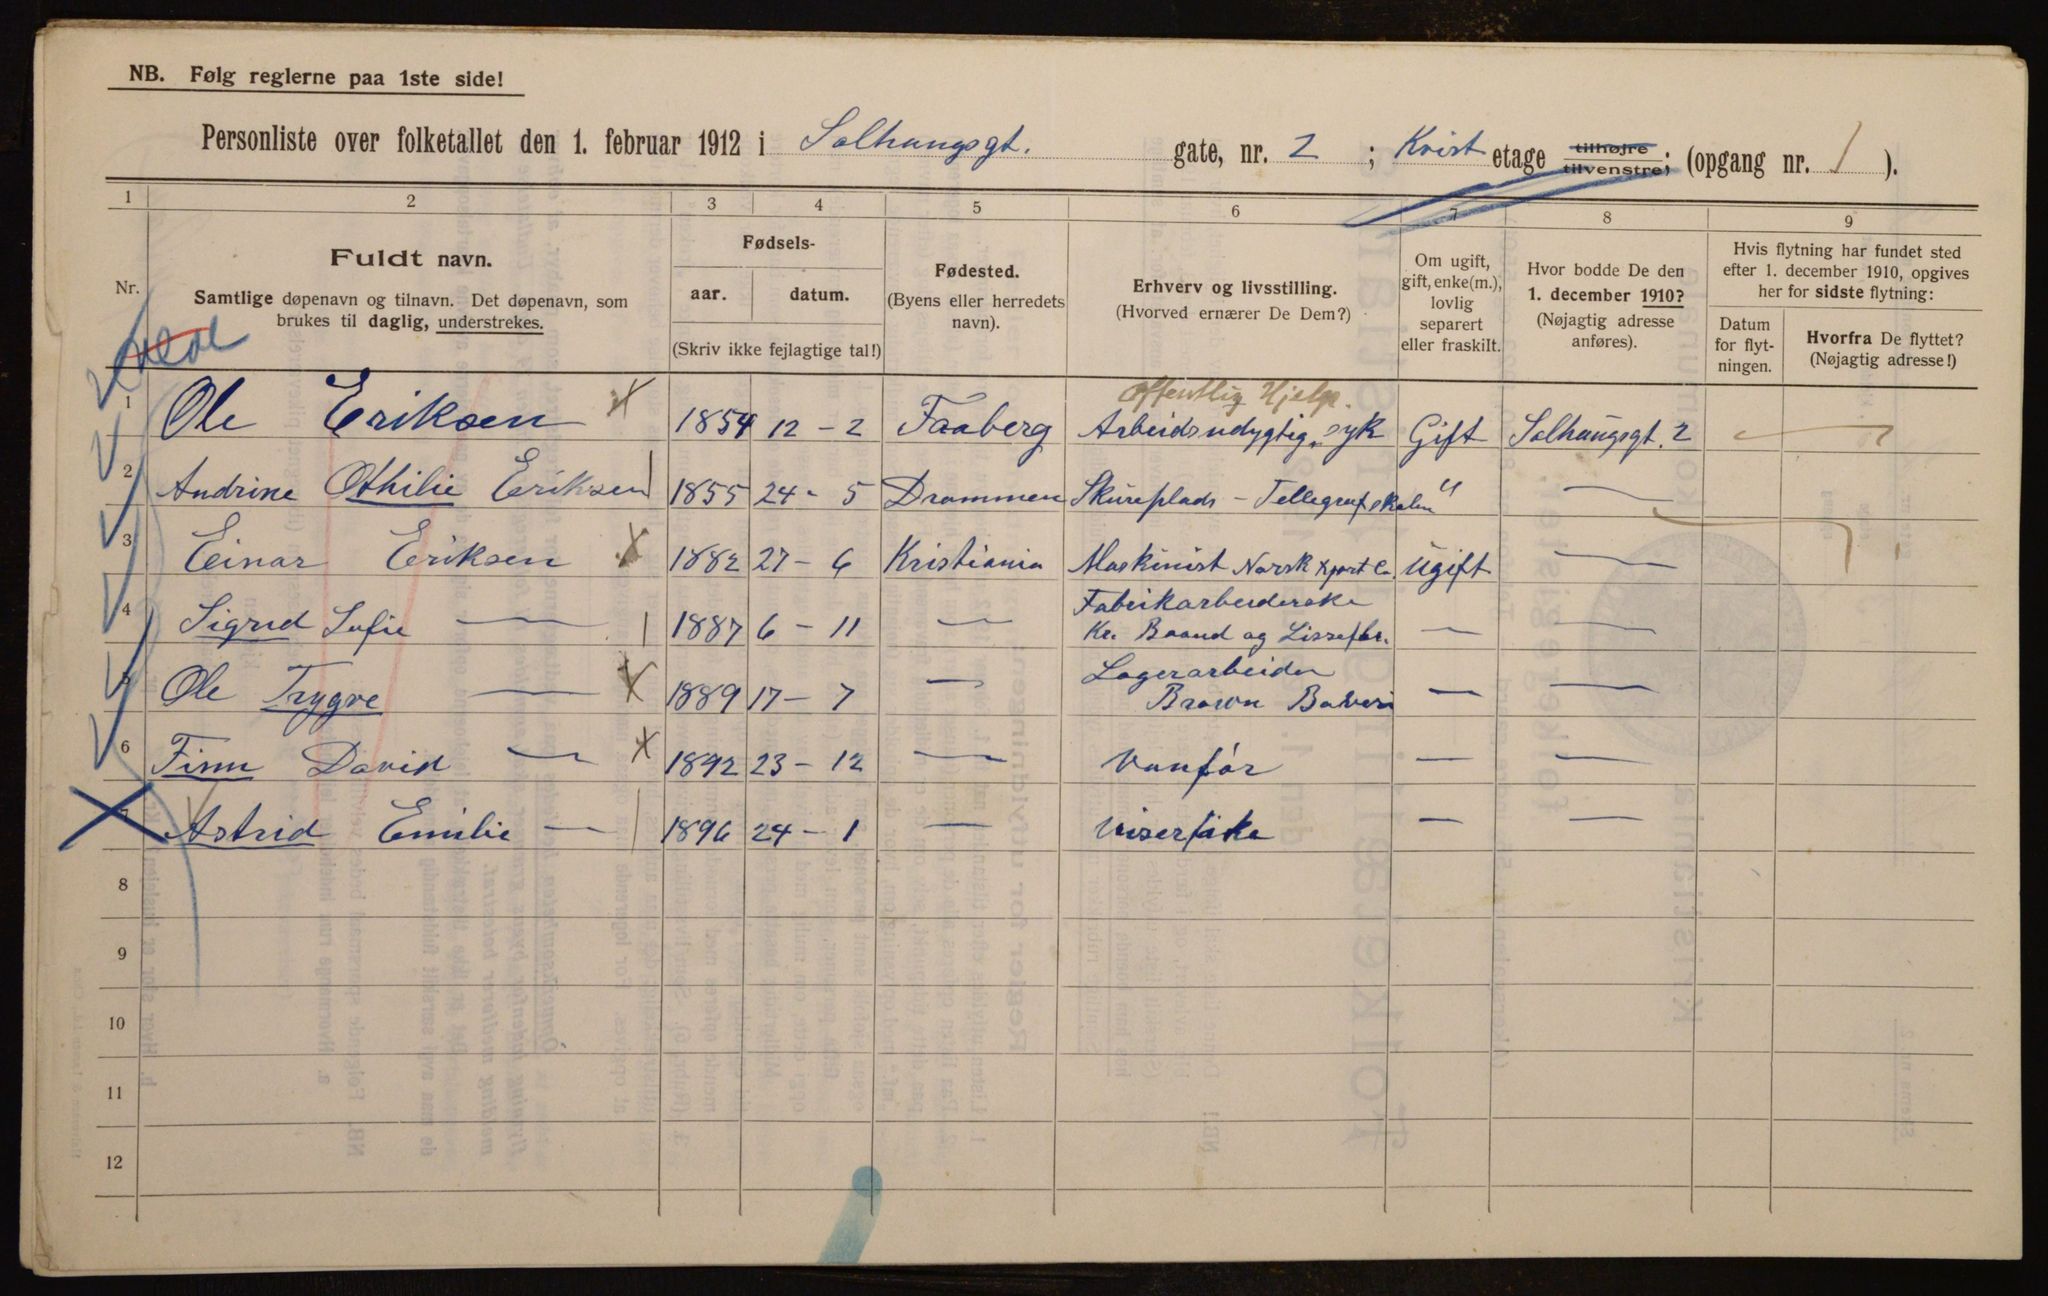 NB. Følg reglerne paa 1ste side!
Personliste over folketallet den 1. februar 1912 i Solhaugsgt. gate, nr. 2 ; Kvist etage tilhøjre tilvenstre; (opgang nr. 1 ).
1 2 3 4 5 6 7 8 9
Nr.
Fuldt navn.
Samtlige døpenavn og tilnavn. Det døpenavn, som
brukes til daglig, understrekes.
Fødsels-
aar. datum.
(Skriv ikke fejlagtige tal!)
Fødested.
(Byens eller herredets
navn).
Erhverv og livsstilling.
(Hvorved ernærer De Dem?)
Om ugift,
gift, enke(m.),
lovlig
separert
eller fraskilt.
Hvor bodde De den
1. december 1910?
(Nøjagtig adresse
anføres).
Hvis flytning har fundet sted
efter 1. december 1910, opgives
her for sidste flytning:
Datum
for flyt-
ningen.
Hvorfra De flyttet?
(Nøjagtig adresse!)
Offentlig Hjelp.
1 Ole Eriksen x 1854 12 - 2 Faaberg Arbeidsudygtig, syk Gift Solhaugsgt. 2 —
2 Andrine Othilie Eriksen 1855 24 - 5 Drammen Skureplads - Tellegrafskolen " —
3 Einar Eriksen x 1882 27 - 6 Kristiania Maskinist Norsk Xport Co. Ugift —
Fabrikarbeiderske
4 Sigrid Sofie — 1887 6 - 11 — Kr. Baand og Lissefbr. — —
Lagerarbeider
5 Ole Trygve — x 1889 17 - 7 — Brown Boveri — —
6 Finn David — x 1892 23 - 12 — Vanfør — —
7 Astrid Emilie — 1896 24 - 1 — Viserpike — —
8
9
10
11
12